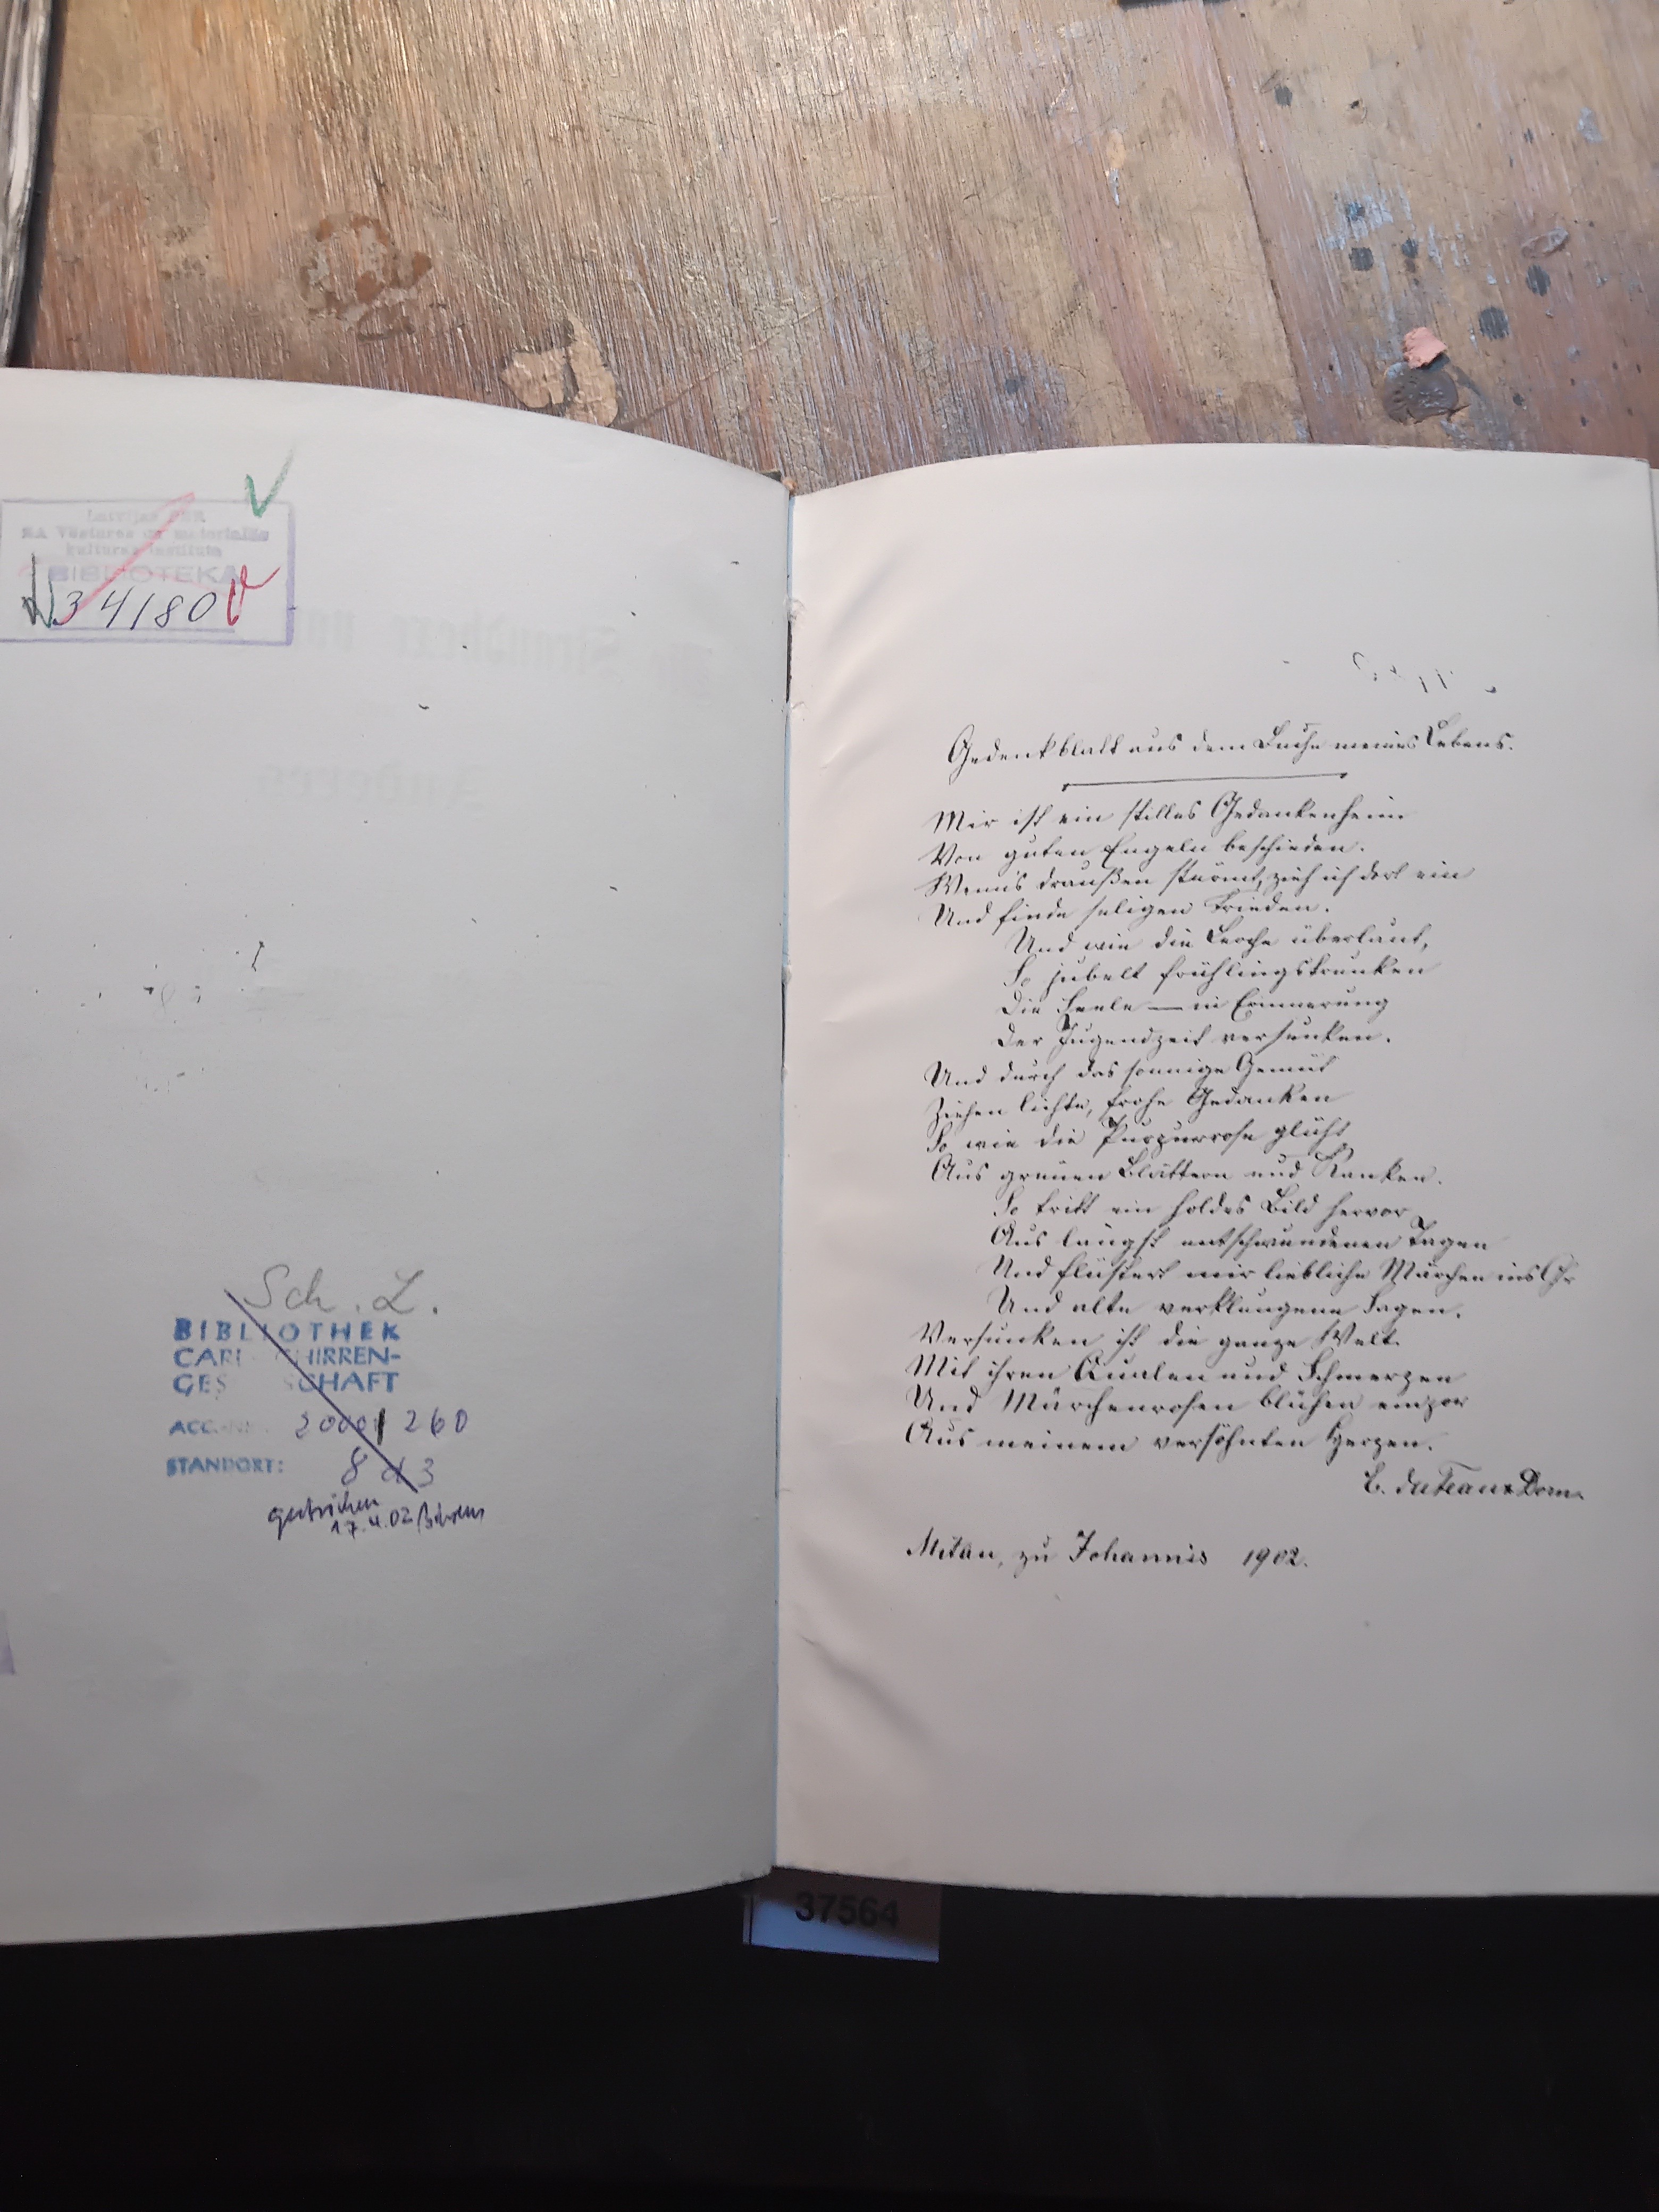 Latvijas PSR
ZA Vēstures un materiālās
kultūras institūta
BIBLIOTEKA
34180
Sch. L.
BIBLIOTHEK
CARL SCHIRREN-
GESELLSCHAFT
ACC.-NR. 2000/260
STANDORT: 8 d 3
gestrichen
17.4.02
Gedenkblatt aus dem Buche meines Lebens.
Mir ist ein stilles Gedankenheim
Von guten Engeln beschieden.
Wenn's draußen stürmt, zieh ich dort ein
Und finde seligen Frieden.
Und wie die Lerche überlaut,
So jubelt frühlingstrunken
Die Seele — in Erinnerung
Der Jugendzeit versunken.
Und durch das sonnige Gemüt
Ziehen lichte, frohe Gedanken
So wie die Purpurrose glüht
Aus grünen Blättern und Ranken.
So tritt ein holdes Bild hervor
Aus längst entschwundenen Tagen
Und flüstert mir liebliche Märchen ins Ohr
Und alte verklungene Sagen.
Versunken ist die ganze Welt
Mit ihren Qualen und Schmerzen
Und Märchenrosen blühen empor
Aus meinem versöhnten Herzen.
Mitau, zu Johannis 1902.
37564